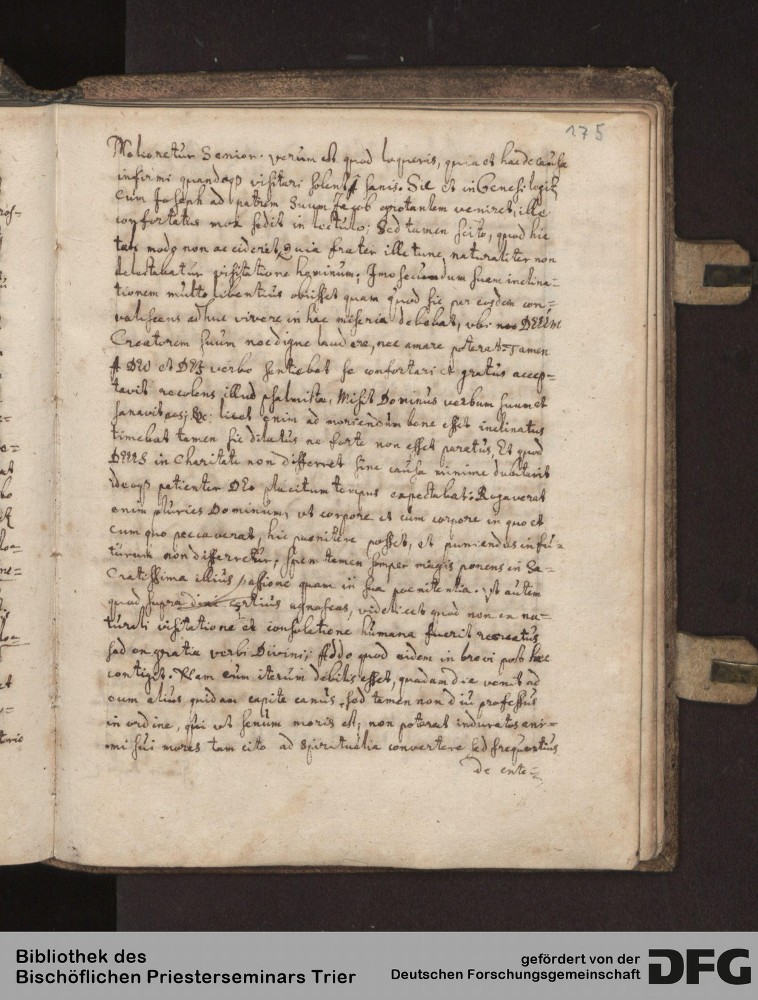 175
Melioretur Senior. verum est quod loqueris, quia et hac de causa
infirmi quandoq visitari solent à sanis. Sic et in Genesi legit
Cum Joseph ad patrem suum Jacob egrotantem veniret, ille
confortatus mox sedit in lectulo; Sed tamen scito, quod hic
tali modo non accideret, Quia frater ille tunc naturaliter non
delectabatur visitatione hominum; Imo secundum suam inclina-
tionem multo libentius obiisset quam quod sic per eosdem con-
valescens adhuc vivere in hac miseria debebat, ubi nec DEUM
Creatorem suum nec digne laudare, nec amare poterat. Tamen
à DEO et DEI verbo sentiebat se confortari et gratus accep-
tavit recolens illud psalmistæ, Misit Dominus verbum suum et
sanavit eos; &c: licet enim ad moriendum bene esset inclinatus
timebat tamen sic dilatus ne forte non esset paratus, Et quod
DEUS in charitate non differret sine causa minime dubitavit
ideoq patienter DEo placitum tempus expectabat. Rogaverat
enim pluries Dominum, ut corpore et cum corpore in quo et
cum quo peccaverat, hic pœnitere posset, et puniendus in fu-
turum non differretur, spem tamen semper magis ponens in Sa-
cratissima illius passione quam in sua pœnitentia. Ut autem
quod supra dixi certius agnoscas, videlicet quod non ex na-
turali visitatione et consolatione humana fuerit recreatus
sed ex gratia verbi Divini; Addo quod eidem in brevi post hæc
contigit. Nam cum iterum debilis esset, quadam die venit ad
eum alius quidam capite canus, sed tamen non diu professus
in ordine, qui ut senum moris est, non poterat induratos ani-
mi sui mores tam cito ad spiritualia convertere sed frequentius
de exte-
Bibliothek des
Bischöflichen Priesterseminars Trier
gefördert von der
Deutschen Forschungsgemeinschaft
DFG